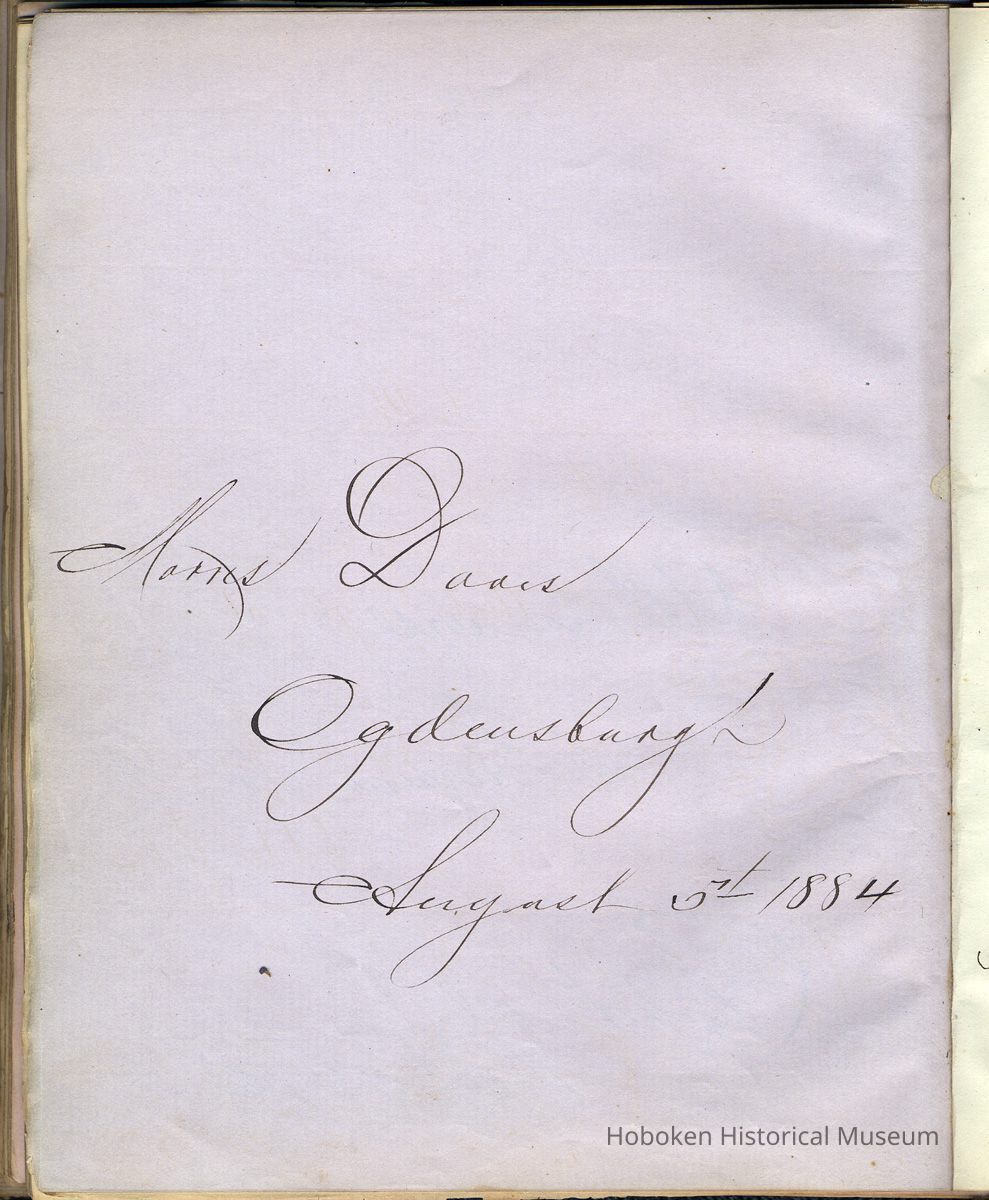 Morris Davis
Ogdensburgh
August 5st 1884
Hoboken Historical Museum